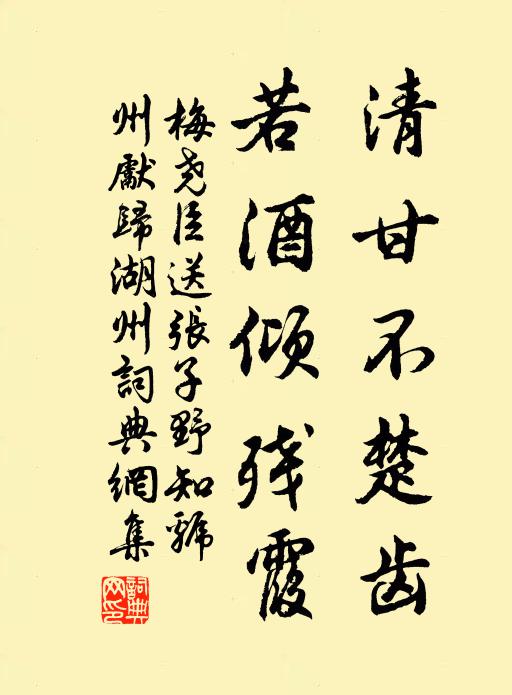 清甘不楚齿
若酒倾残霞
梅尧臣送張子野知虢
州獻歸湖州詞典網集